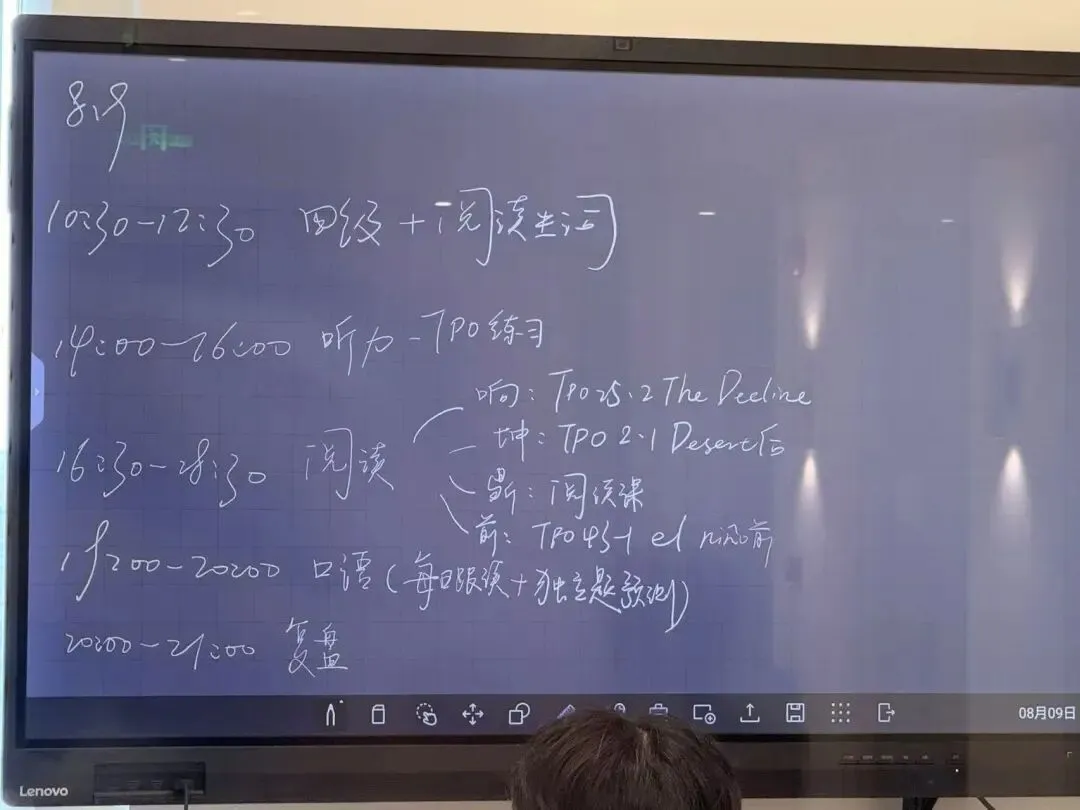 8.9
10:30-12:30 四级 + 阅读生词
14:00-16:00 听力 - TPO 练习
响: TPO 25.2 The Decline
坤: TPO 2.1 Desert后
16:30-18:30 阅读
: 阅读课
前: TPO 43-1 el nino前
19:00-20:00 口语 (每日跟读+独立题预测)
20:00-21:00 复盘
08月09日
Lenovo